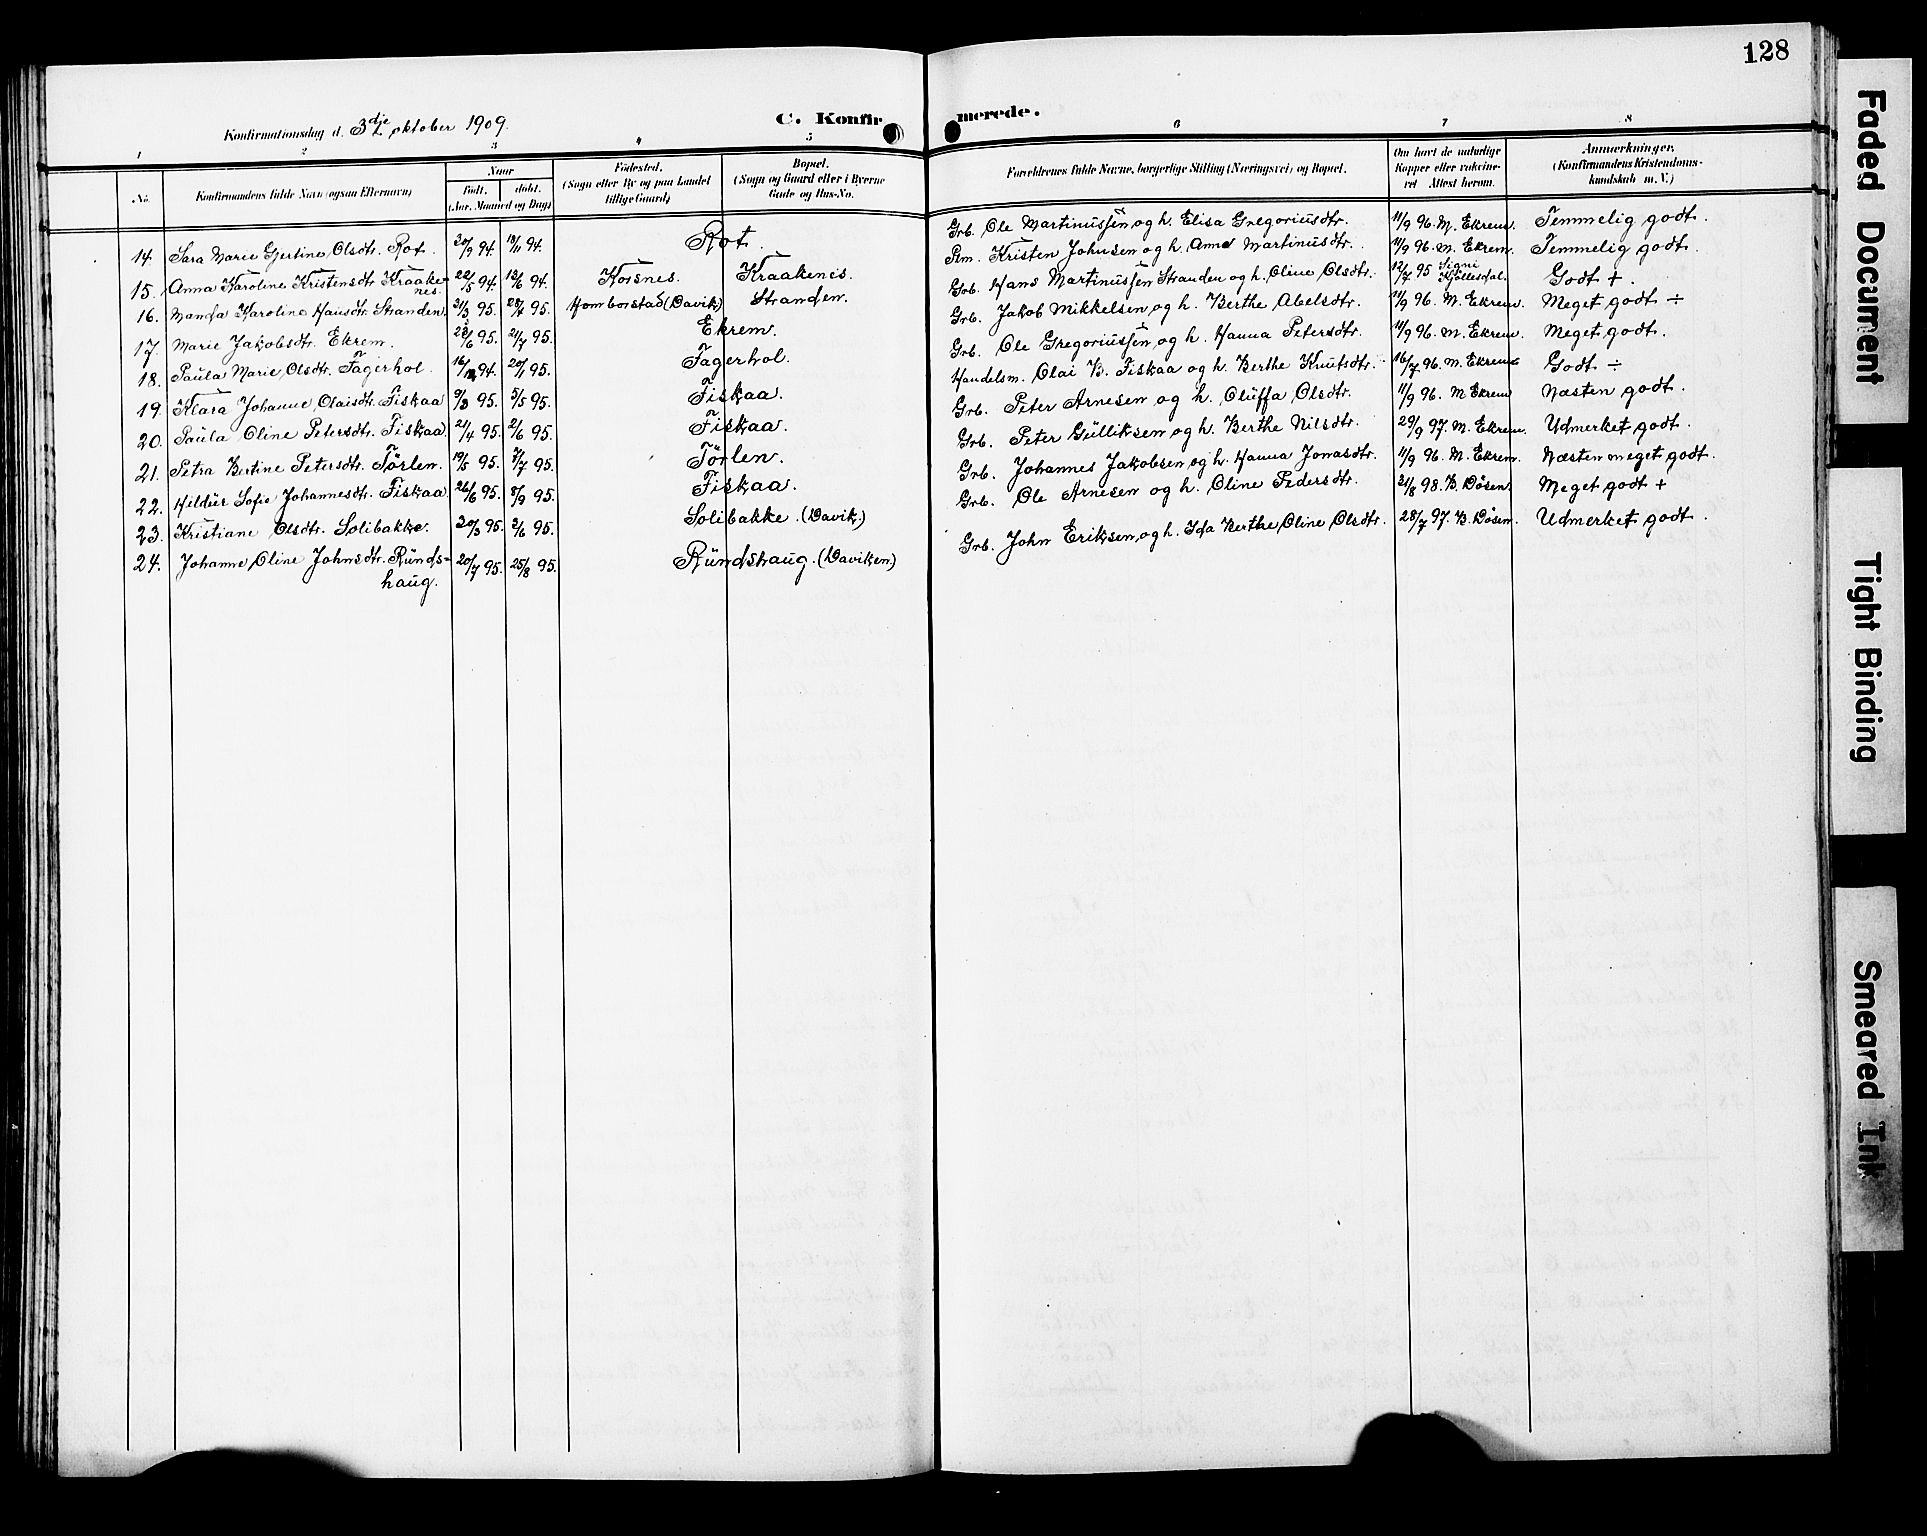 128
Konfirmationsdag d. 3dje oktober 1909.
C. Konfirmerede.
1 2 3 4 5 6 7 8
No. Konfirmandens fulde Navn (ogsaa Efternavn) Naar født. døbt. (Aar, Maaned og Dag) Fødested. (Sogn eller By og paa Landet tillige Gaard) Bopæl. (Sogn og Gaard eller i Byerne Gade og Hus-No. Forældrenes fulde Navne, borgerlige Stilling (Næringsvei) og Bopæl. Om havt de naturlige Kopper eller vakcineret Attest herom. Anmerkninger. (Konfirmandens Kristendomskundskab m. V.)
14. Sara Marie Gjertine Olsdtr. Rot. 30/9 94. 94. Rot. Grb. Ole Martinussen og h. Elisa Gregoriusdtr. 11/9 96. M. Ekrem. Temmelig godt.
15. Anna Karoline Kristensdtr. Kraakenes. 22/5 94. 13/6 94. Korsnes. Kraakenes. Pm. Kristen Johnsen og h. Anne Martinusdtr. 11/9 96. M. Ekrem. Temmelig godt.
16. Nanda Karoline Hansdtr. Stranden. 31/3 95. 28/4 95. Homborstad (Davik) Stranden. Grb. Hans Martinussen Stranden og h. Oline Olsdtr. 12/7 95 Signi Kjøllesdal. Godt +.
17. Marie Jakobsdtr. Ekrem. 23/6 95. 21/7 95. Ekrem. Grb. Jakob Mikkelsen og h. Berthe Abelsdtr. 11/9 96. M. Ekrem. Meget godt ÷
18. Paula Marie Olsdtr. Fagerhol. 16/12 94. 20/1 95. Fagerhol. Grb. Ole Gregoriussen og h. Hanna Petersdtr. 11/9 96. M. Ekrem. Meget godt.
19. Klara Johanne Olaisdtr. Fiskaa 9/3 95. 5/5 95. Fiskaa. Handelsm. Olai B. Fiskaa og h. Berthe Knutsdtr. 16/7 96. M. Ekrem Godt ÷
20. Paula Oline Petersdtr. Fiskaa. 21/4 95. 2/6 95. Fiskaa. Grb. Peter Arnesen og h. Oluffa Olsdtr. 11/9 96. M Ekrem Næsten godt.
21. Petra Bertine Petersdtr. Tørlen. 19/5 95. 7/7 95. Tørlen. Grb. Peter Gulliksen og h. Berthe Nilsdtr. 29/9 97. M. Ekrem. Udmerket godt.
22. Hildur Sofie Johannesdtr. Fiskaa 26/6 95. 8/9 95. Fiskaa. Grb. Johannes Jakobsen og h. Hanna Jonasdtr. 11/9 96. M. Ekrem. Næsten meget godt.
23. Kristiane Olsdtr. Solibakke. 30/3 95. 2/6 95. Solibakke. (Davik.) Grb. Ole Arnesen og h. Oline Pedersdtr. 31/8 98. B. Døsen. Meget godt +
24. Johanne Oline Johnsdtr. Rundshaug. 20/7 95. 25/8 95. Rundshaug. (Daviken) Grb. John Eriksen og h. Ida Berthe Oline Olsdtr. 28/7 97. B. Døsen. Udmerket godt.
Faded Document
Tight Binding
Smeared Ink